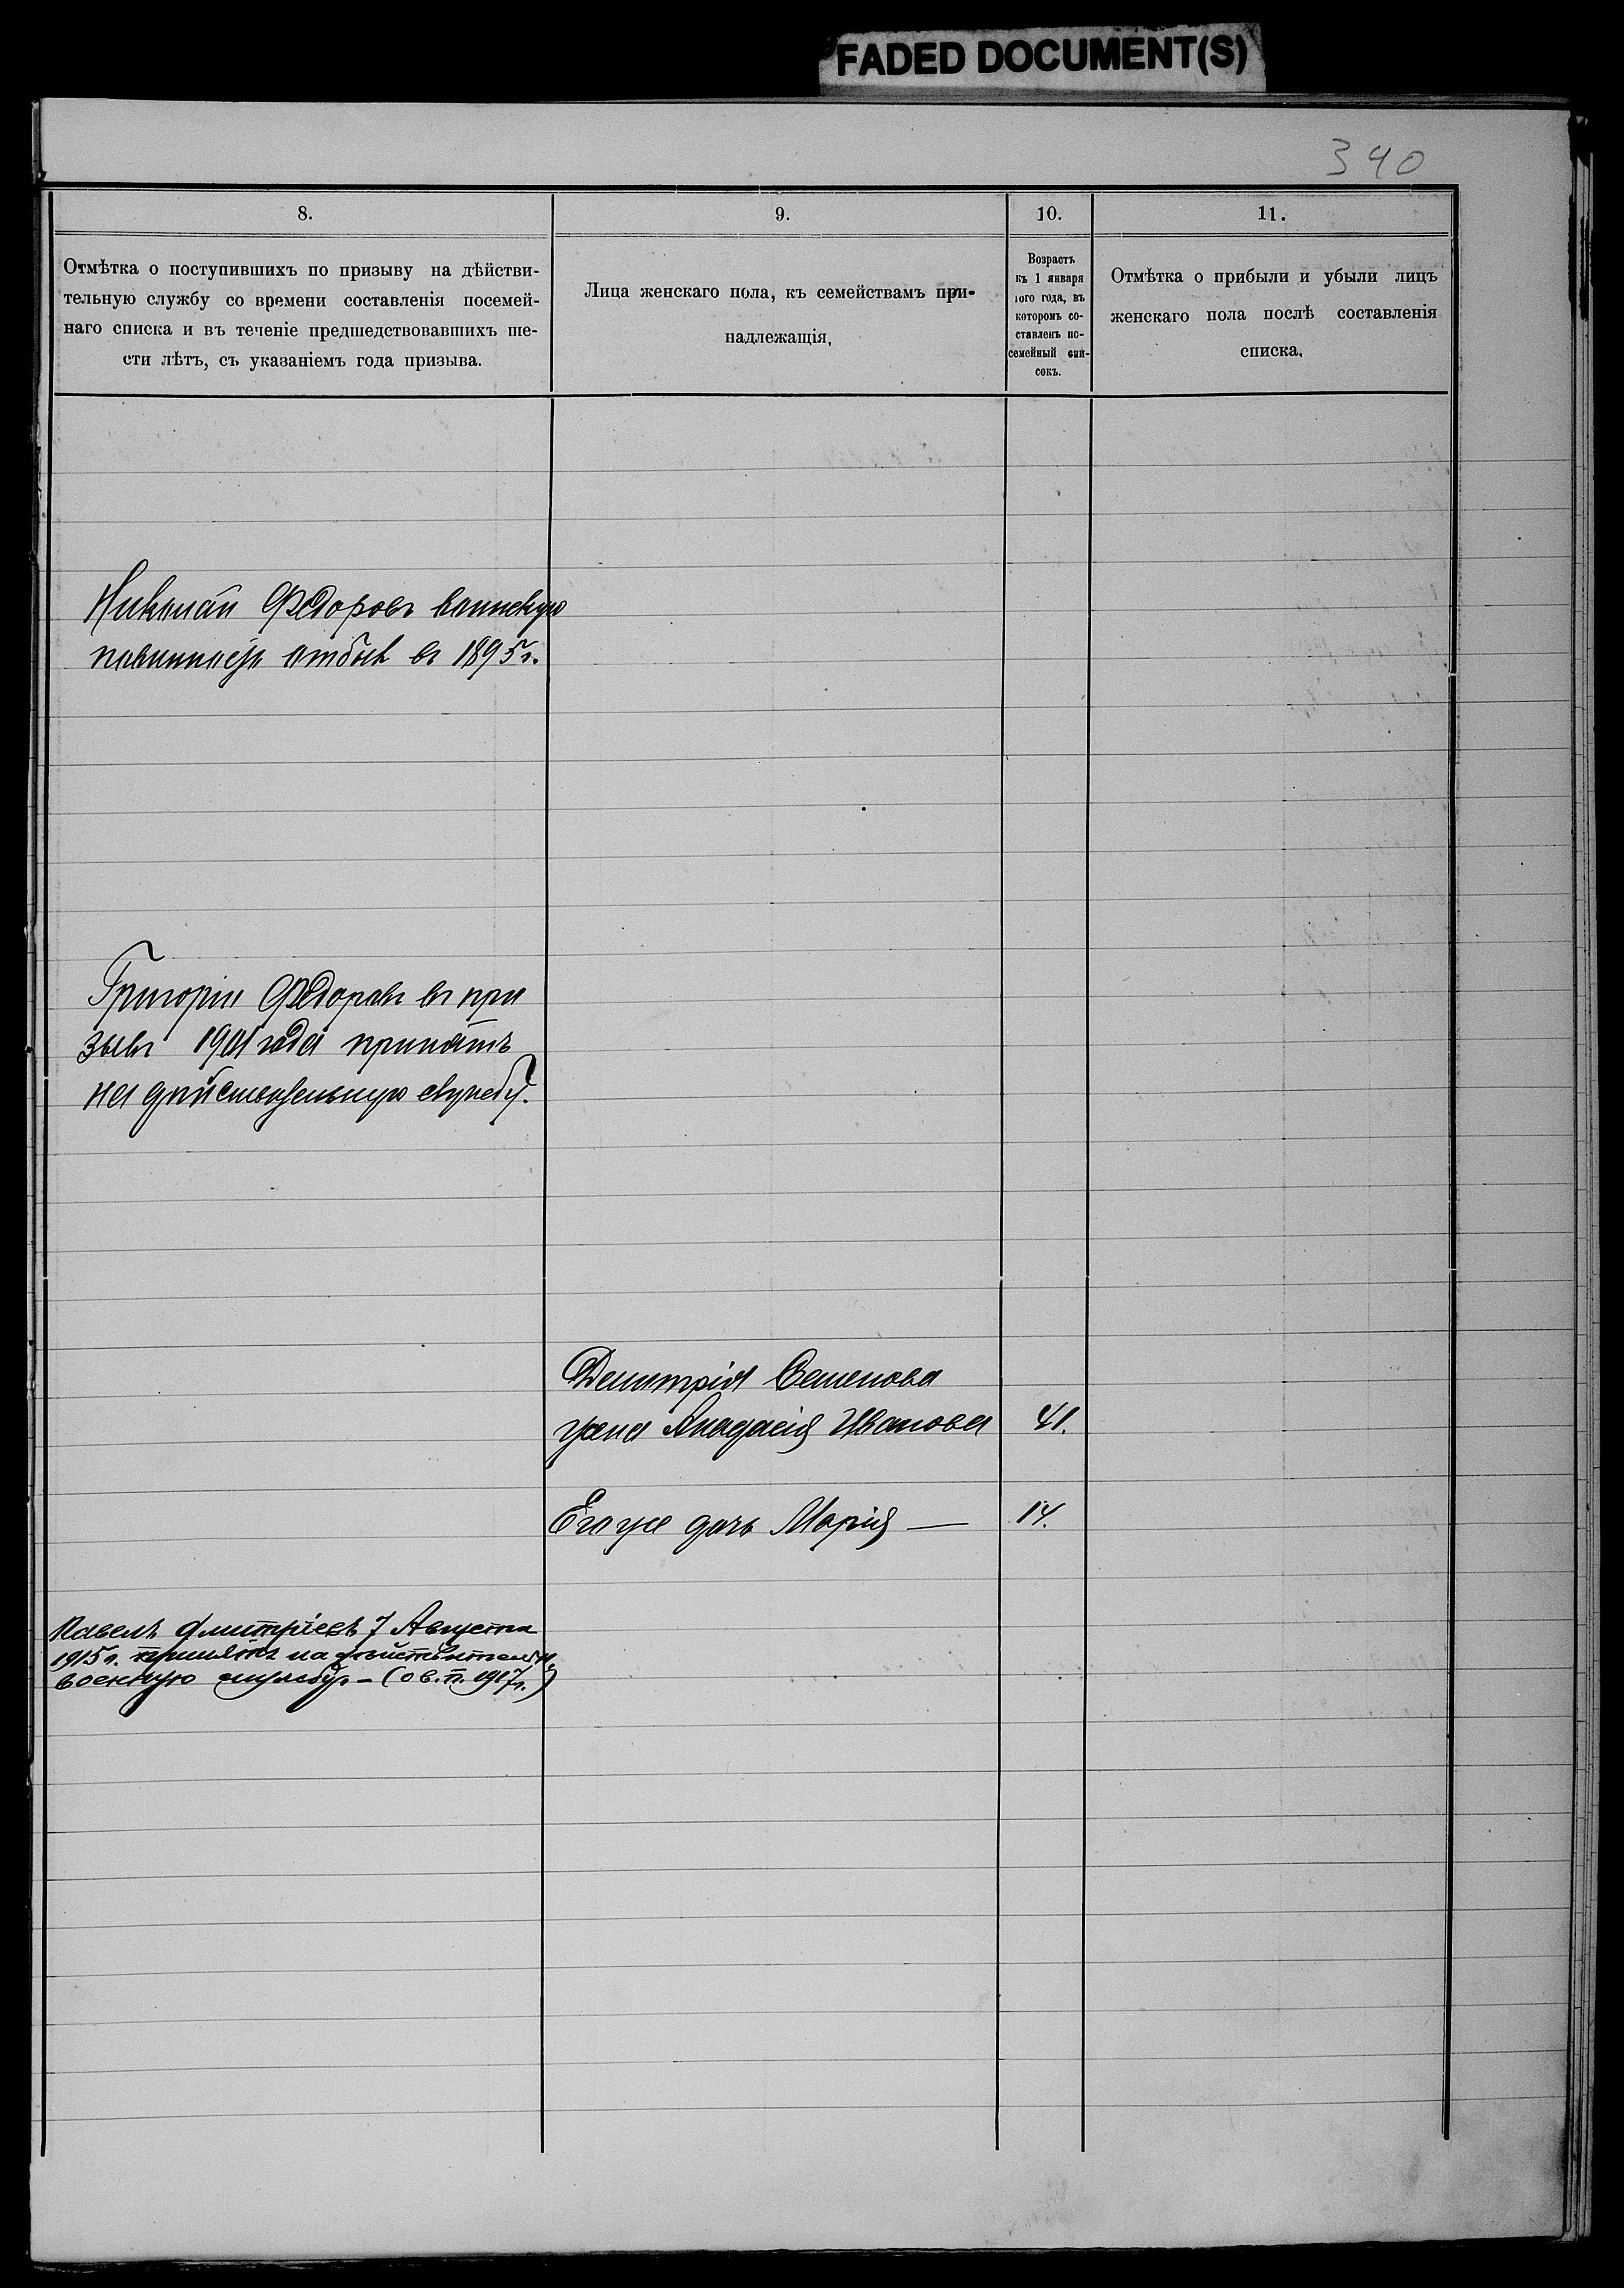 FADED DOCUMENT(S)
340
8.
9.
10.
11.
Отмѣтка о поступившихъ по призыву на дѣйстви-
тельную службу со времени составленія посемей-
наго списка и въ теченіе предшедствовавшихъ ше-
сти лѣтъ, съ указаніемъ года призыва.
Лица женскаго пола, къ семействамъ при-
надлежащія,
Возрастъ
къ 1 января
того года, въ
которомъ со-
ставленъ по-
семейный спи-
сокъ.
Отмѣтка о прибыли и убыли лицъ
женскаго пола послѣ составленія
списка,
Николай Федоровъ воинскую
повинность отбылъ въ 1895 г.
Григорій Федоровъ въ при
зывъ 1901 года принятъ
на дѣйствительную службу.
Димитрія Семенова
жена Анастасія Иванова 41.
Его же дочь Марія — 14.
Павелъ Дмитріевъ 7 Августа
1915 г. принятъ на дѣйствительн.
военную службу. – (о в. п. 1917 г.)